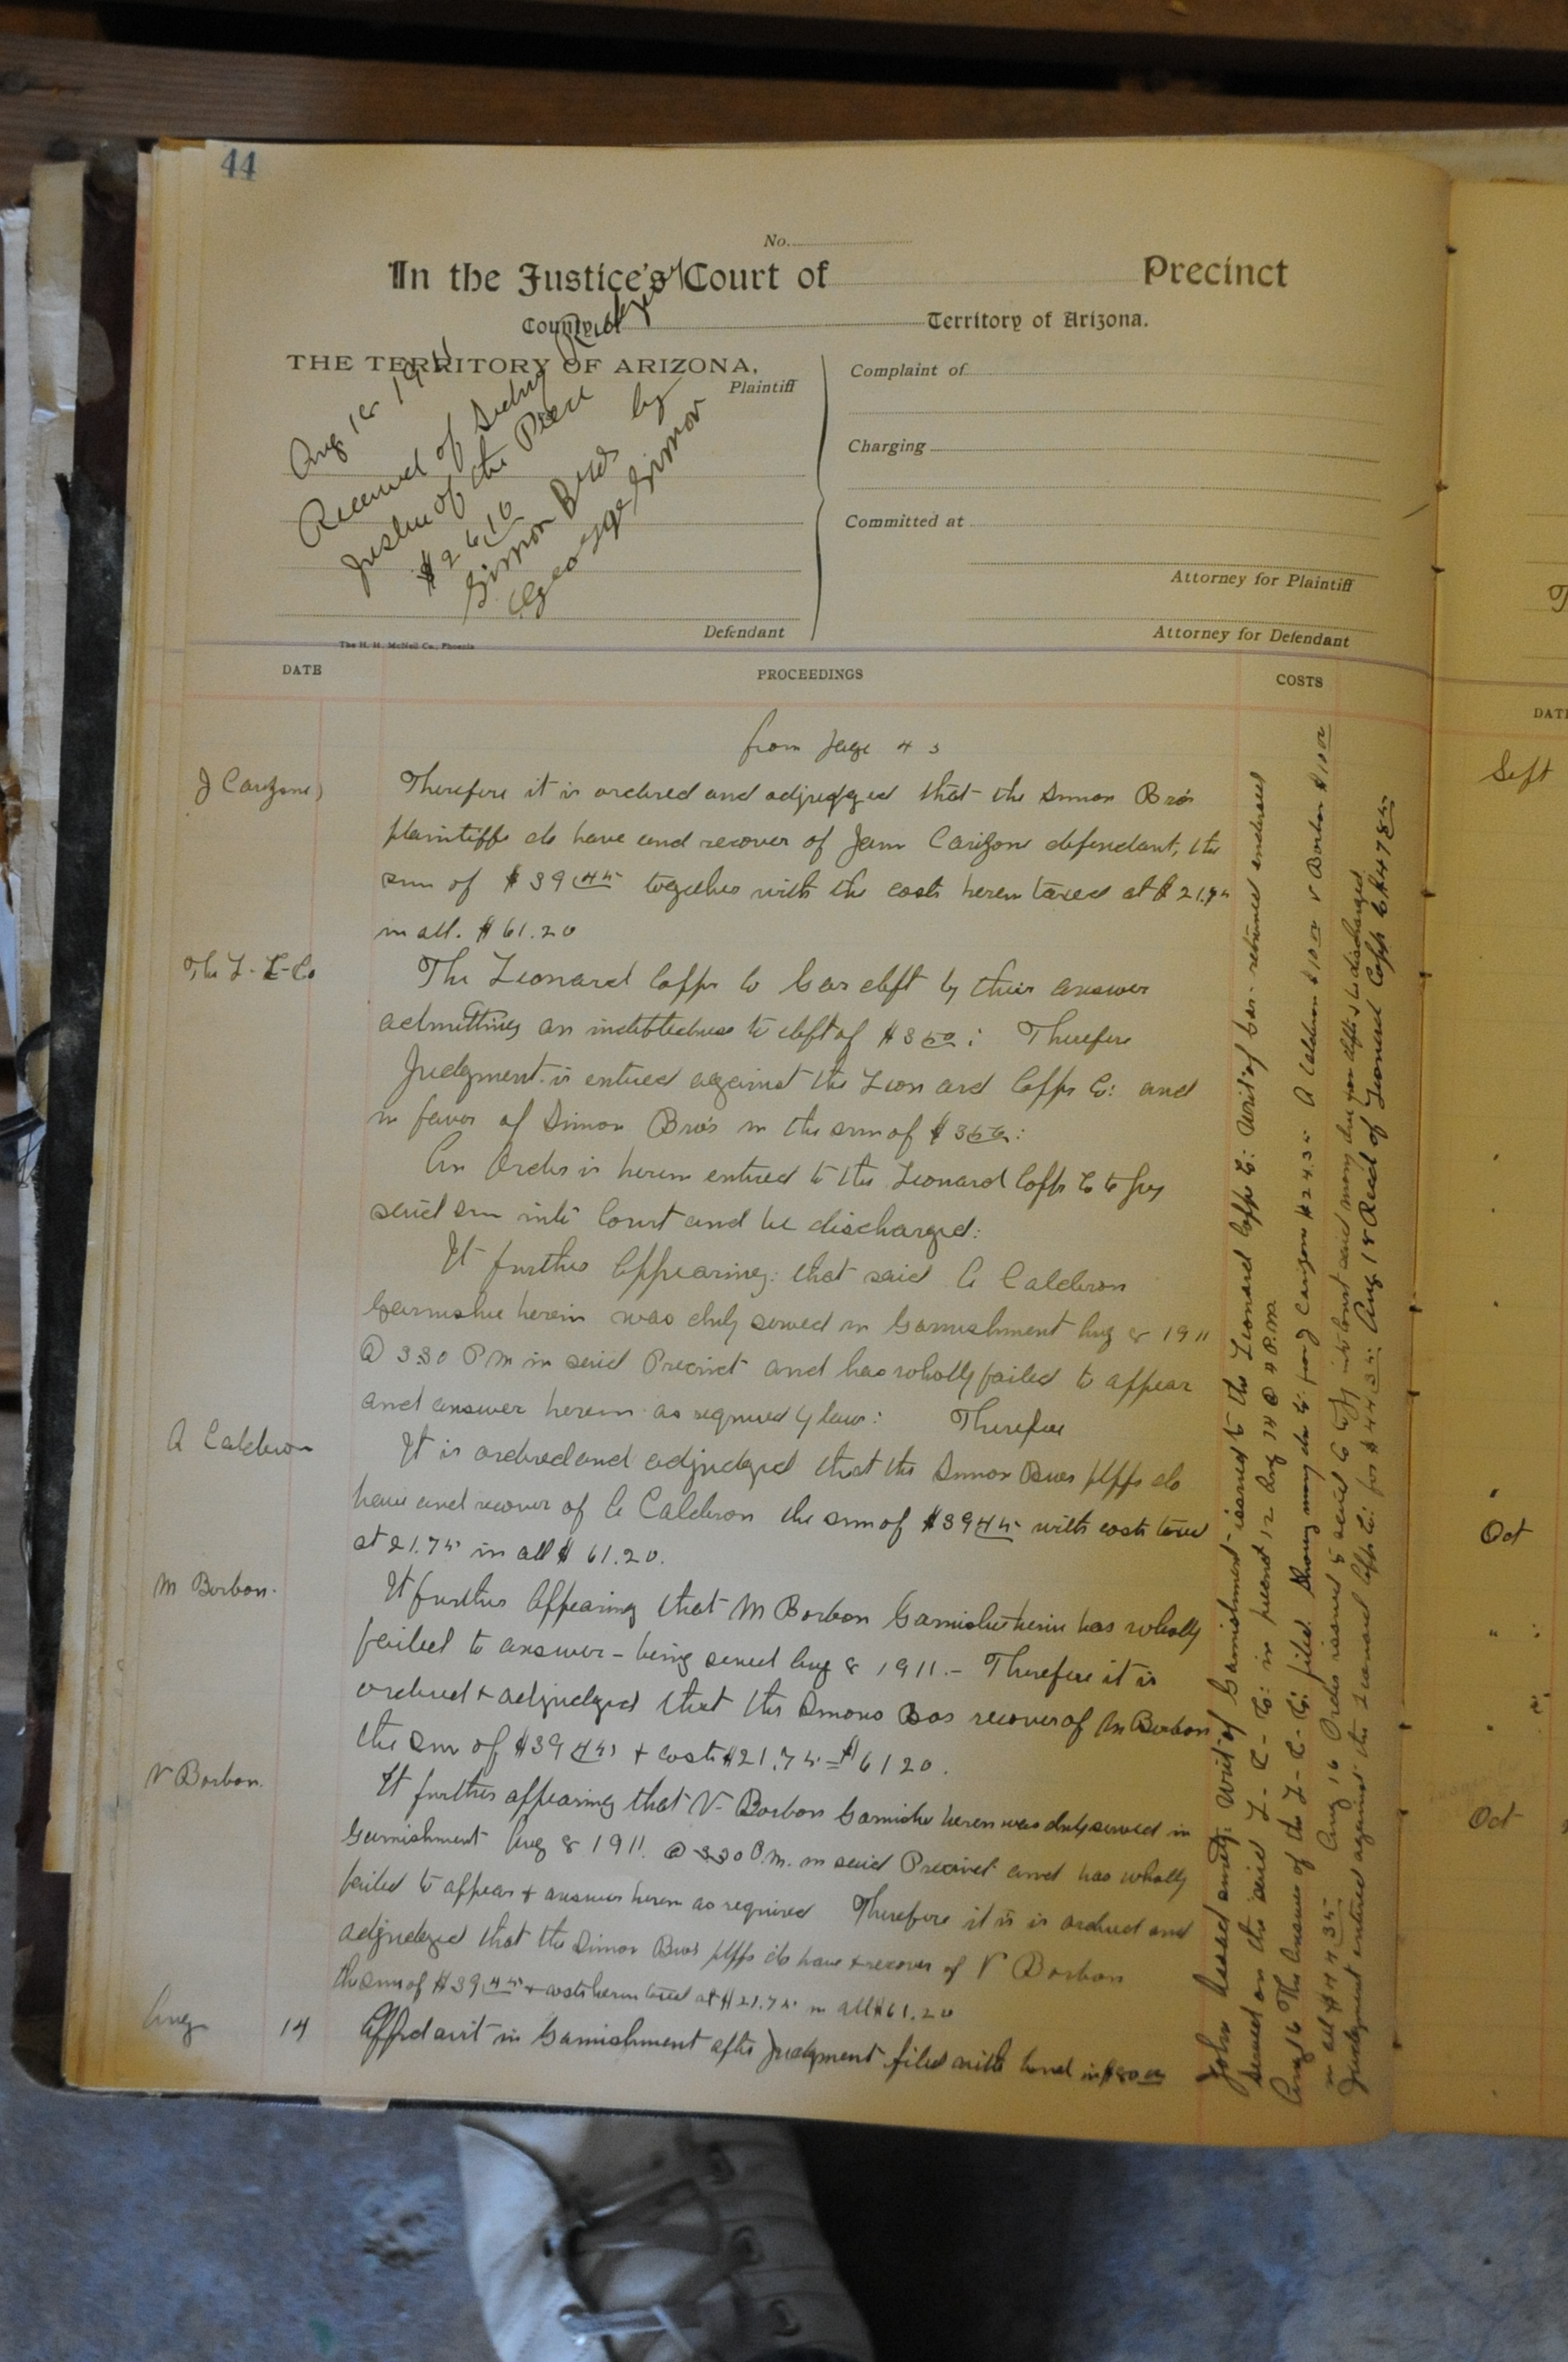 44
No.
In the Justice's Court of Precinct
County of Territory of Arizona.
THE TERRITORY OF ARIZONA,
Plaintiff
Complaint of
Charging
Committed at
Attorney for Plaintiff
Defendant
Attorney for Defendant
The H. H. McNeil Co., Phoenix
Aug 18 1911
Received of Sidney
Justice of the Peace
$26.10
Simon Bros by
George Simon
DATE PROCEEDINGS COSTS
from page 43
J Carizone
Therefore it is ordered and adjudged that the Simon Bro's
plaintiffs do have and recover of Jam Carizone defendant, the
sum of $39 45 together with the costs herein taxed at $21.75
in all. $61.20
The L-C-Co
The Leonard Copp Co Gar deft by their answer
admitting an indebtedness to deft of $3 50: Therefore
Judgment is entered against the Leonard Copp Co: and
in favor of Simon Bro's in the sum of $3 50:
An Order is herein entered to the Leonard Copp Co to pay
said sum into Court and be discharged:
It further Appearing: that said A Calderon
Garnishee herein was duly served in Garnishment Aug 8 1911
@ 330 PM in said Precinct and has wholly failed to appear
and answer herein as required by law: Therefore
A Calderon
It is ordered and adjudged that the Simon Bros plffs do
have and recover of A Calderon the sum of $39 45 with costs taxed
at 21.75 in all $61.20.
M Borbon.
It further Appearing that M Borbon Garnishee herein has wholly
failed to answer - being served Aug 8 1911.- Therefore it is
ordered + adjudged that the Simons Bos recover of M Borbon
the sum of $39 45 + costs $21.75 = $61 20.
V Borbon.
It further appearing that V- Borbon Garnishe herein was duly served in
Garnishment Aug 8 1911. @ 330 P.M. in said Precinct and has wholly
failed to appear + answer herein as required Therefore it is is ordered and
adjudged that the Simon Bros plffs do have + recover of V Borbon
the sum of $39 45 + costs herein taxed at $21.75 in all $61.20
Aug 14 Affidavit in Garnishment after Judgment filed with bond in $80 00
John surety. Writ of Garnishment - issued to the Leonard Copp Co: Writ of Gar - returned endorsed
served on the said L-C-Co: in precinct 12 Aug 14 @ 4 P.M.
Aug 16 The Answer of the L-C-Co: filed. Showing money due to: from J Carizone $24.35 A Calderon $10.00 V Borbon $10 00
in all $44 35. Aug 16 Order issued said Co to pay into Court said money due from defts + be discharged
Judgment entered against the Leonard Copp Co: for $44 35. Aug 18 Recd of Leonard Copp Co $47 85
Sept
Oct
Oct
DATE